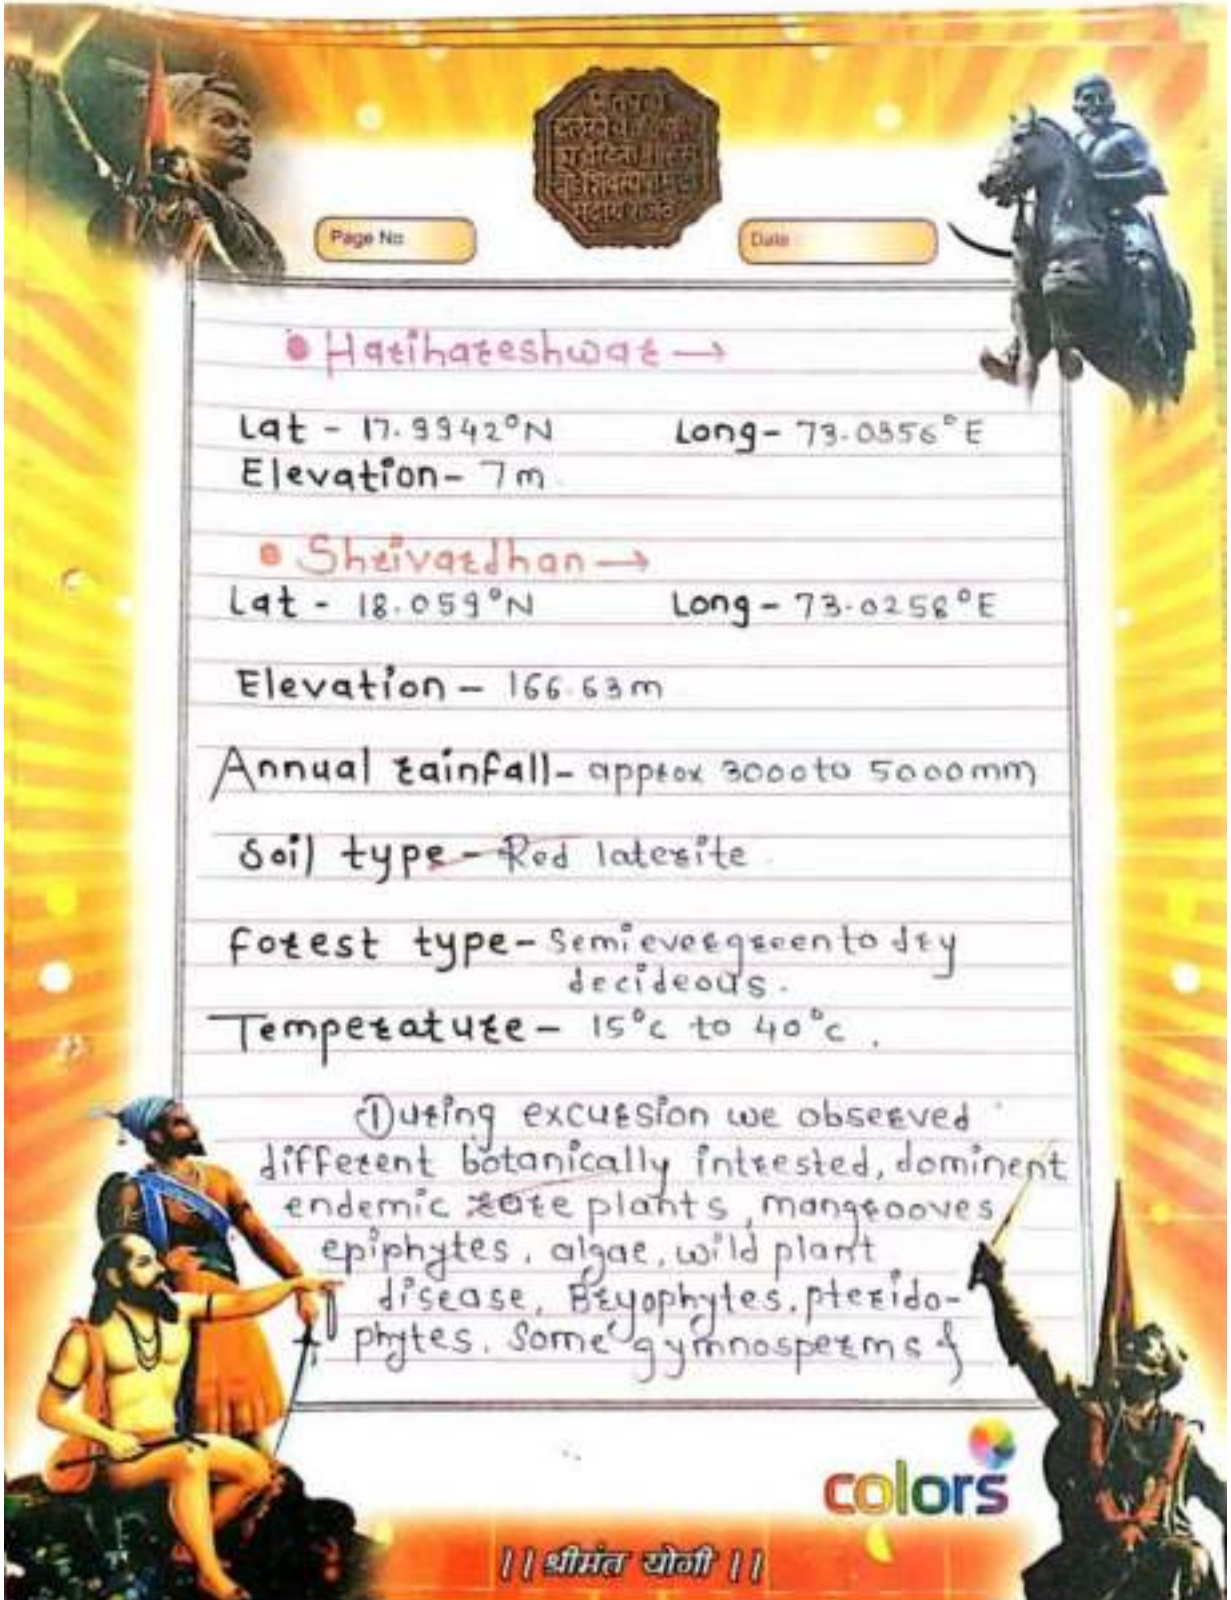 Page No
Date
• Harihareshwar →
Lat - 17.9942°N Long - 73.0356°E
Elevation - 7m.
• Shrivardhan →
Lat - 18.059°N Long - 73.0258°E
Elevation - 166.63m
Annual rainfall - approx 3000 to 5000mm
Soil type - Red laterite.
forest type - Semievergreen to dry
decideous.
Temperature - 15°c to 40°c.
During excursion we observed
different botanically intrested, dominent
endemic rare plants, mangrooves
epiphytes, algae, wild plant
disease, Bryophytes, pterido-
phytes, Some gymnosperms &
colors
|| श्रीमंत योगी ||